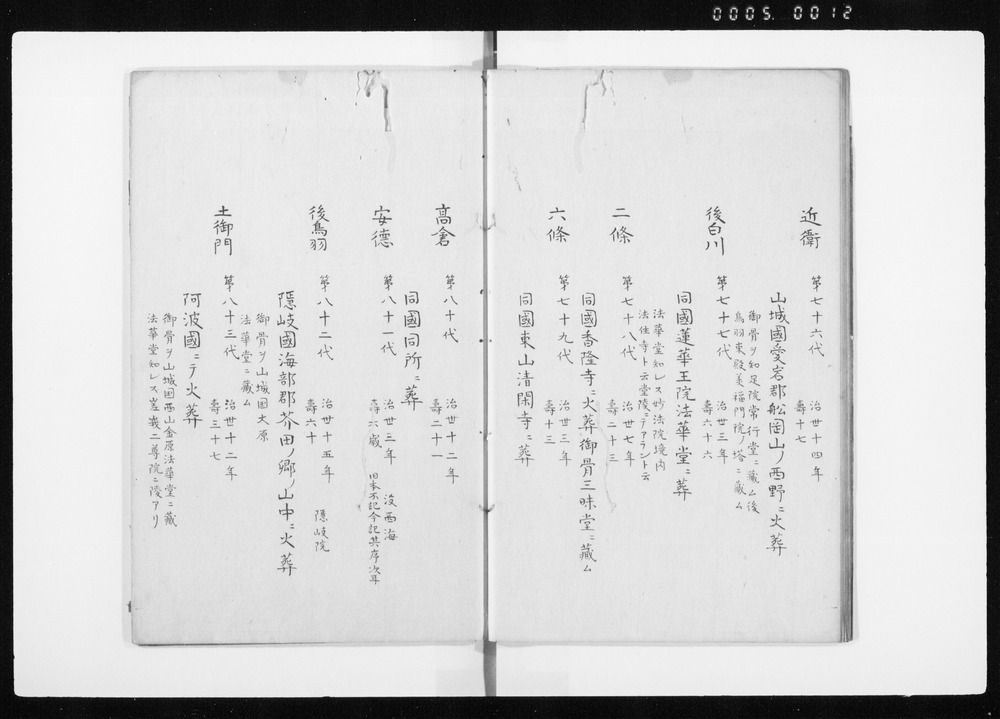 0005. 0012
近衛
第七十六代
治世十四年
壽十七
山城國愛宕郡舩岡山ノ西野ニ火葬
御骨ヲ知足院常行堂ニ藏ム後
鳥羽東殿美福門院ノ塔ニ藏ム
後白川
第七十七代
治世三年
壽六十六
同國蓮華王院法華堂ニ葬
法華堂知レス妙法院境内
法住寺ト云堂陵ニテアラント云
二條
第七十八代
治世七年
壽二十三
同國香隆寺ニ火葬御骨三昧堂ニ藏ム
六條
第七十九代
治世三年
壽十三
同國東山清閑寺ニ葬
高倉
第八十代
治世十二年
壽二十一
同國同所ニ葬
安德
第八十一代
治世三年
壽六歳
没西海
旧本不記今記其序次耳
後鳥羽
第八十二代
治世十五年
壽六十
隠岐院
隠岐國海部郡芥田ノ郷ノ山中ニ火葬
御骨ヲ山城国大原
法華堂ニ藏ム
土御門
第八十三代
治世十二年
壽三十七
阿波國ニテ火葬
御骨ヲ山城国西山金原法華堂ニ藏
法華堂知レス嵯峩二尊院ニ陵アリ